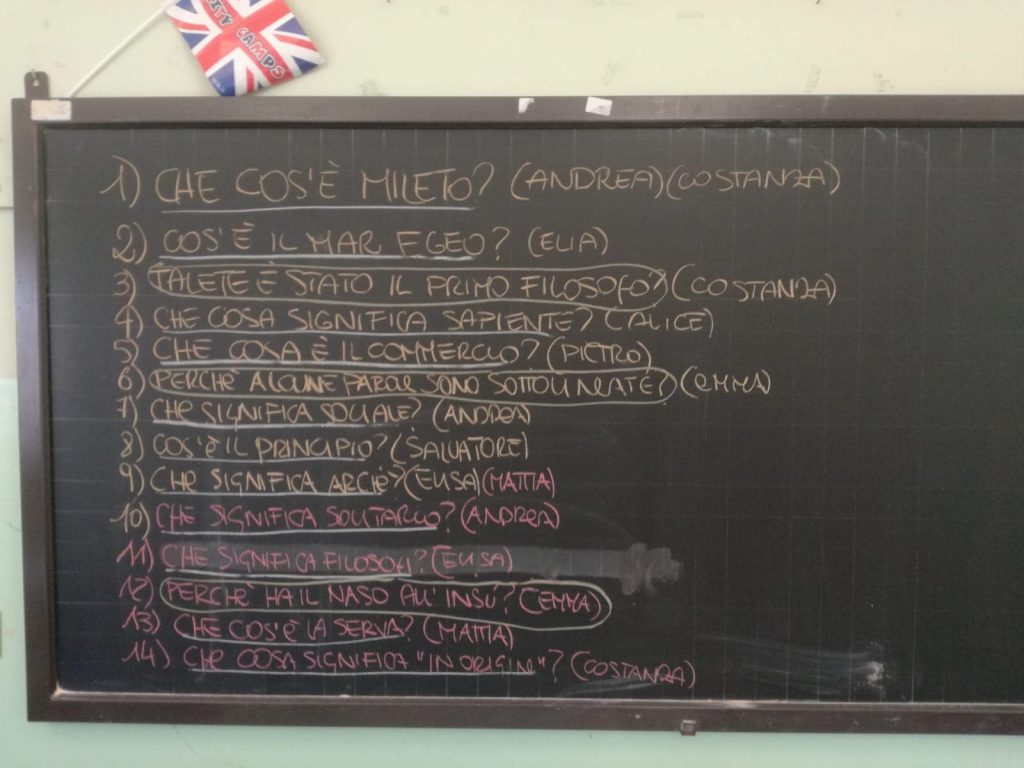 CITY CAMPS
1) CHE COS'È MILETO? (ANDREA)(COSTANZA)
2) COS'È IL MAR EGEO? (ELIA)
3) TALETE È STATO IL PRIMO FILOSOFO? (COSTANZA)
4) CHE COSA SIGNIFICA SAPIENTE? (ALICE)
5) CHE COSA È IL COMMERCIO? (PIETRO)
6) PERCHÈ ALCUNE PAROLE SONO SOTTOLINEATE? (EMMA)
7) CHE SIGNIFICA SOCIALE? (ANDREA)
8) COS'È IL PRINCIPIO? (SALVATORE)
9) CHE SIGNIFICA ARCHÈ? (ELISA)(MATTIA)
10) CHE SIGNIFICA SOLITARIO? (ANDREA)
11) CHE SIGNIFICA FILOSOFI? (ELISA)
12) PERCHÈ HA IL NASO ALL'INSÙ? (EMMA)
13) CHE COS'È LA SERVA? (MATTIA)
14) CHE COSA SIGNIFICA "IN ORIGINE"? (COSTANZA)